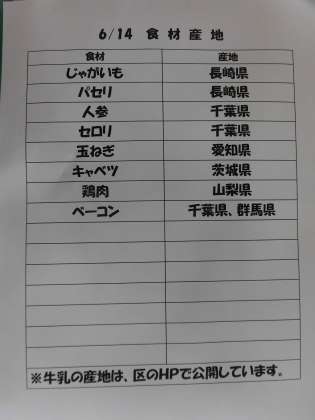 6/14 食材産地
食材 産地
じゃがいも 長崎県
パセリ 長崎県
人参 千葉県
セロリ 千葉県
玉ねぎ 愛知県
キャベツ 茨城県
鶏肉 山梨県
ベーコン 千葉県、群馬県
※牛乳の産地は、区のHPで公開しています。